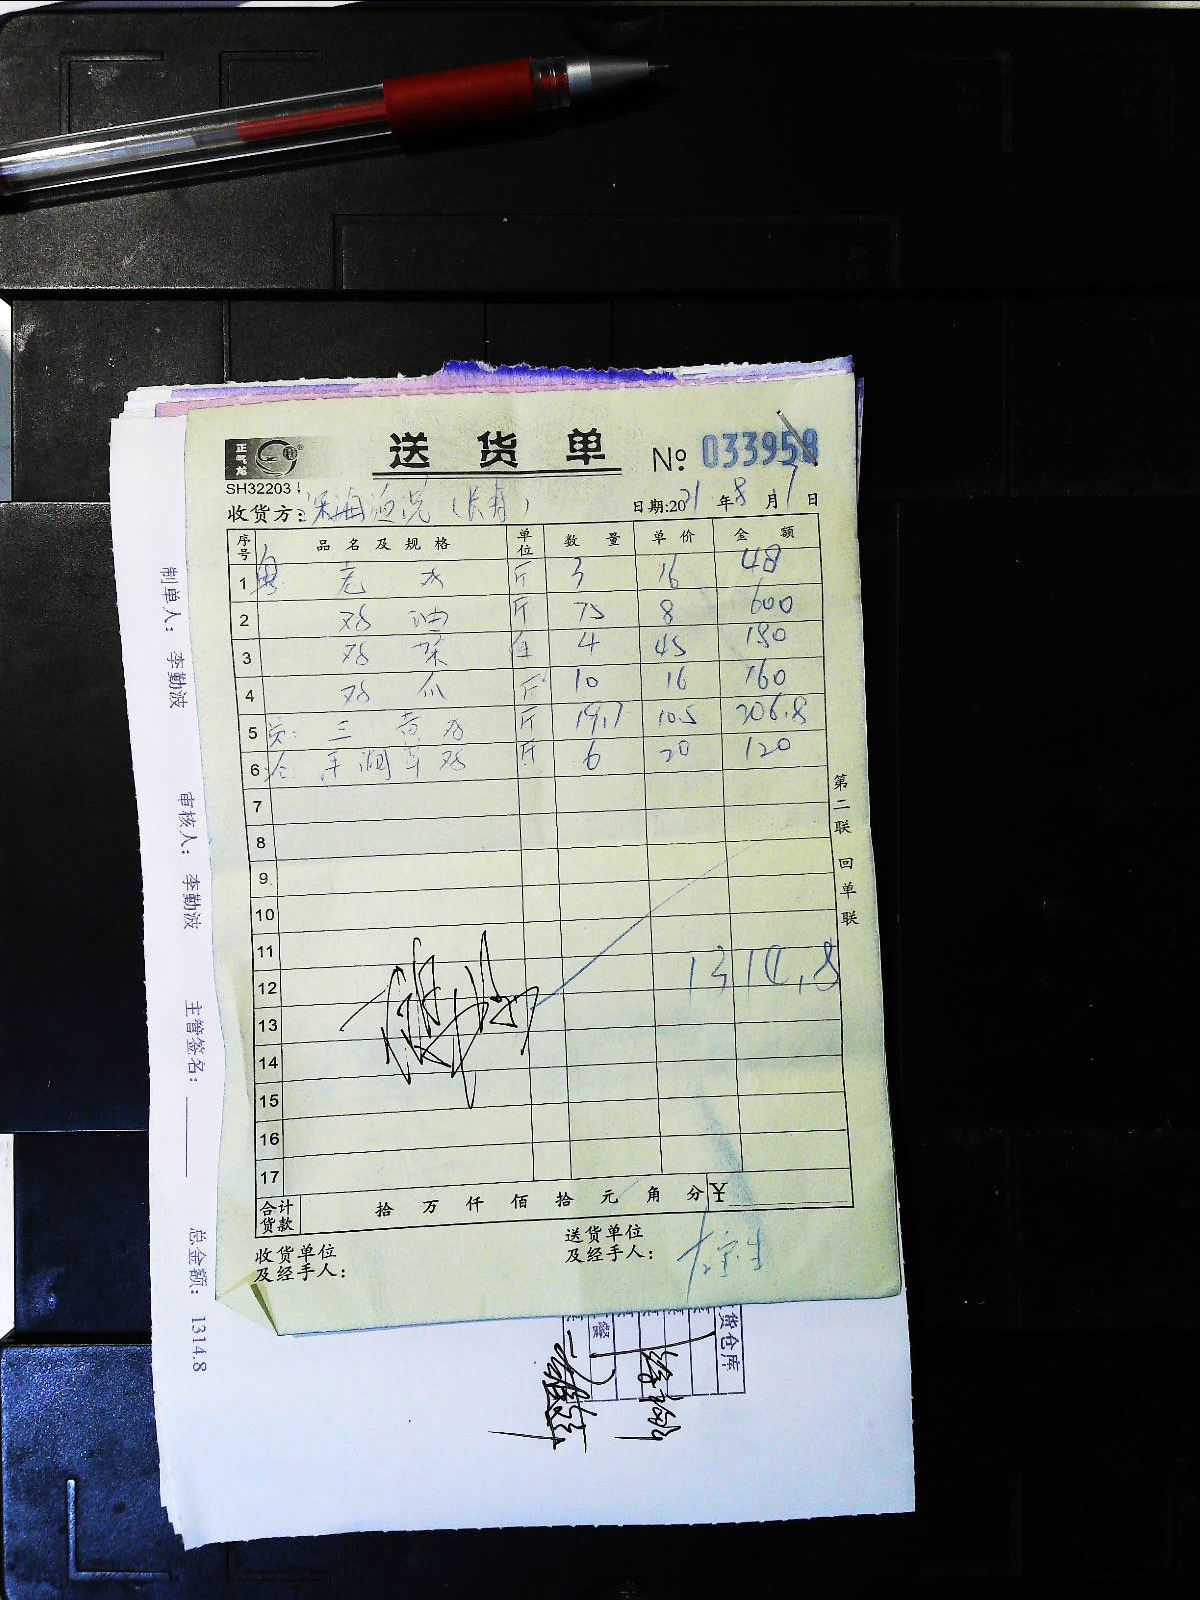 正气龙
送货单 № 033958
SH32203
收货方: 深海渔况(长青) 日期:2021年8月7日
序号 品名及规格 单位 数量 单价 金额
1 斤 3 16 48
2 鸡油 斤 75 8 600
3 鸡 4 45 180
4 鸡爪 斤 10 16 160
5 三黄鸡 斤 19.7 10.5 206.8
6 斤 6 20 120
7
8
9
10
11
12 1314.8
13
14
15
16
17
合计货款 拾万仟佰拾元角分 ¥
收货单位及经手人:
送货单位及经手人:
第二联 回单联
制单人: 李勤波 审核人: 李勤波 主管签名: 总金额: 1314.8
货仓库
餐